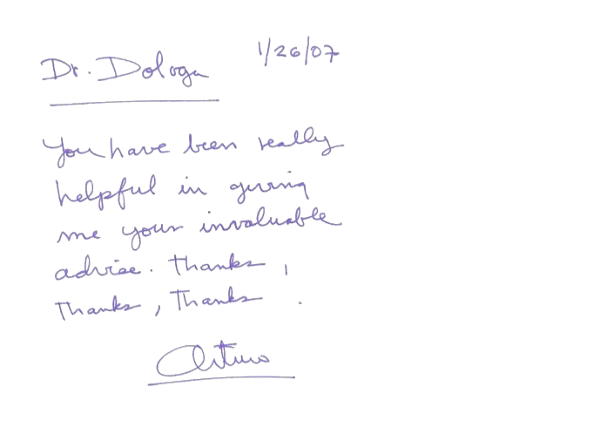 Dr. Dologa 1/26/07
You have been really
helpful in giving
me your invaluable
advise. Thanks,
Thanks, Thanks.
Arturo